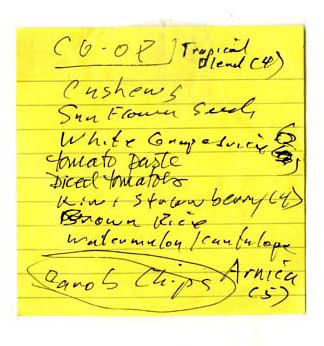 CO-OP
Tropical
Blend (4)
Cashews
Sun Flower Seeds
White Grape Juice
Tomato Paste
Diced tomatoes
Kiwi Strawberry (4)
Brown Rice
Watermelon/Cantalope
Carob Chips
Arnica
(5)